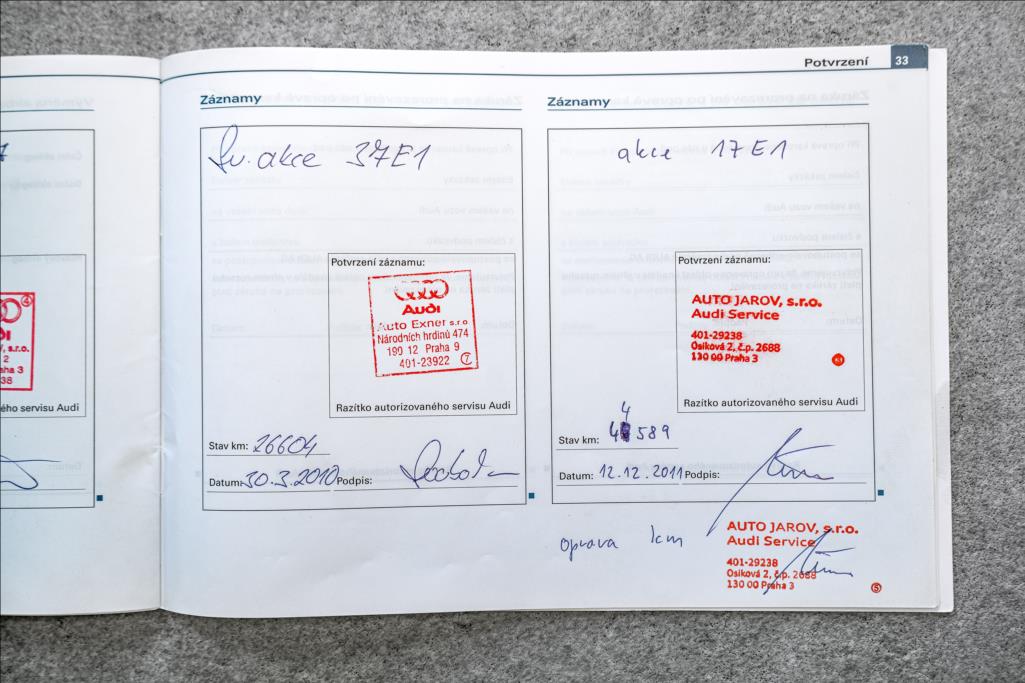 Potvrzení 33
Záznamy
Sv. akce 37E1
Potvrzení záznamu:
Audi
Auto Exner s.r.o
Národních hrdinů 474
190 12 Praha 9
401-23922 7
Razítko autorizovaného servisu Audi
Stav km: 26604
Datum: 30.3.2010 Podpis:
Záznamy
akce 17E1
Potvrzení záznamu:
AUTO JAROV, s.r.o.
Audi Service
401-29238
Osiková 2, č.p. 2688
130 00 Praha 3
Razítko autorizovaného servisu Audi
4
Stav km: 4 589
Datum: 12.12.2011 Podpis:
oprava km
AUTO JAROV, s.r.o.
Audi Service
401-29238
Osiková 2, č.p. 2688
130 00 Praha 3
5
4
s.r.o.
2
aha 3
38
ého servisu Audi